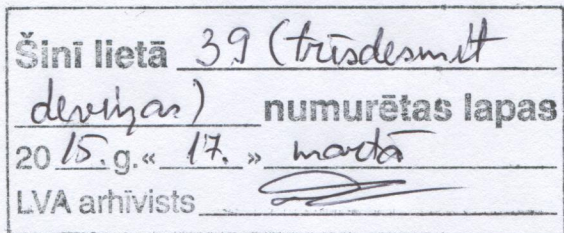 Šinī lietā 39 (trīsdesmit
deviņas) numurētas lapas
2015.g.« 17. » martā
LVA arhīvists